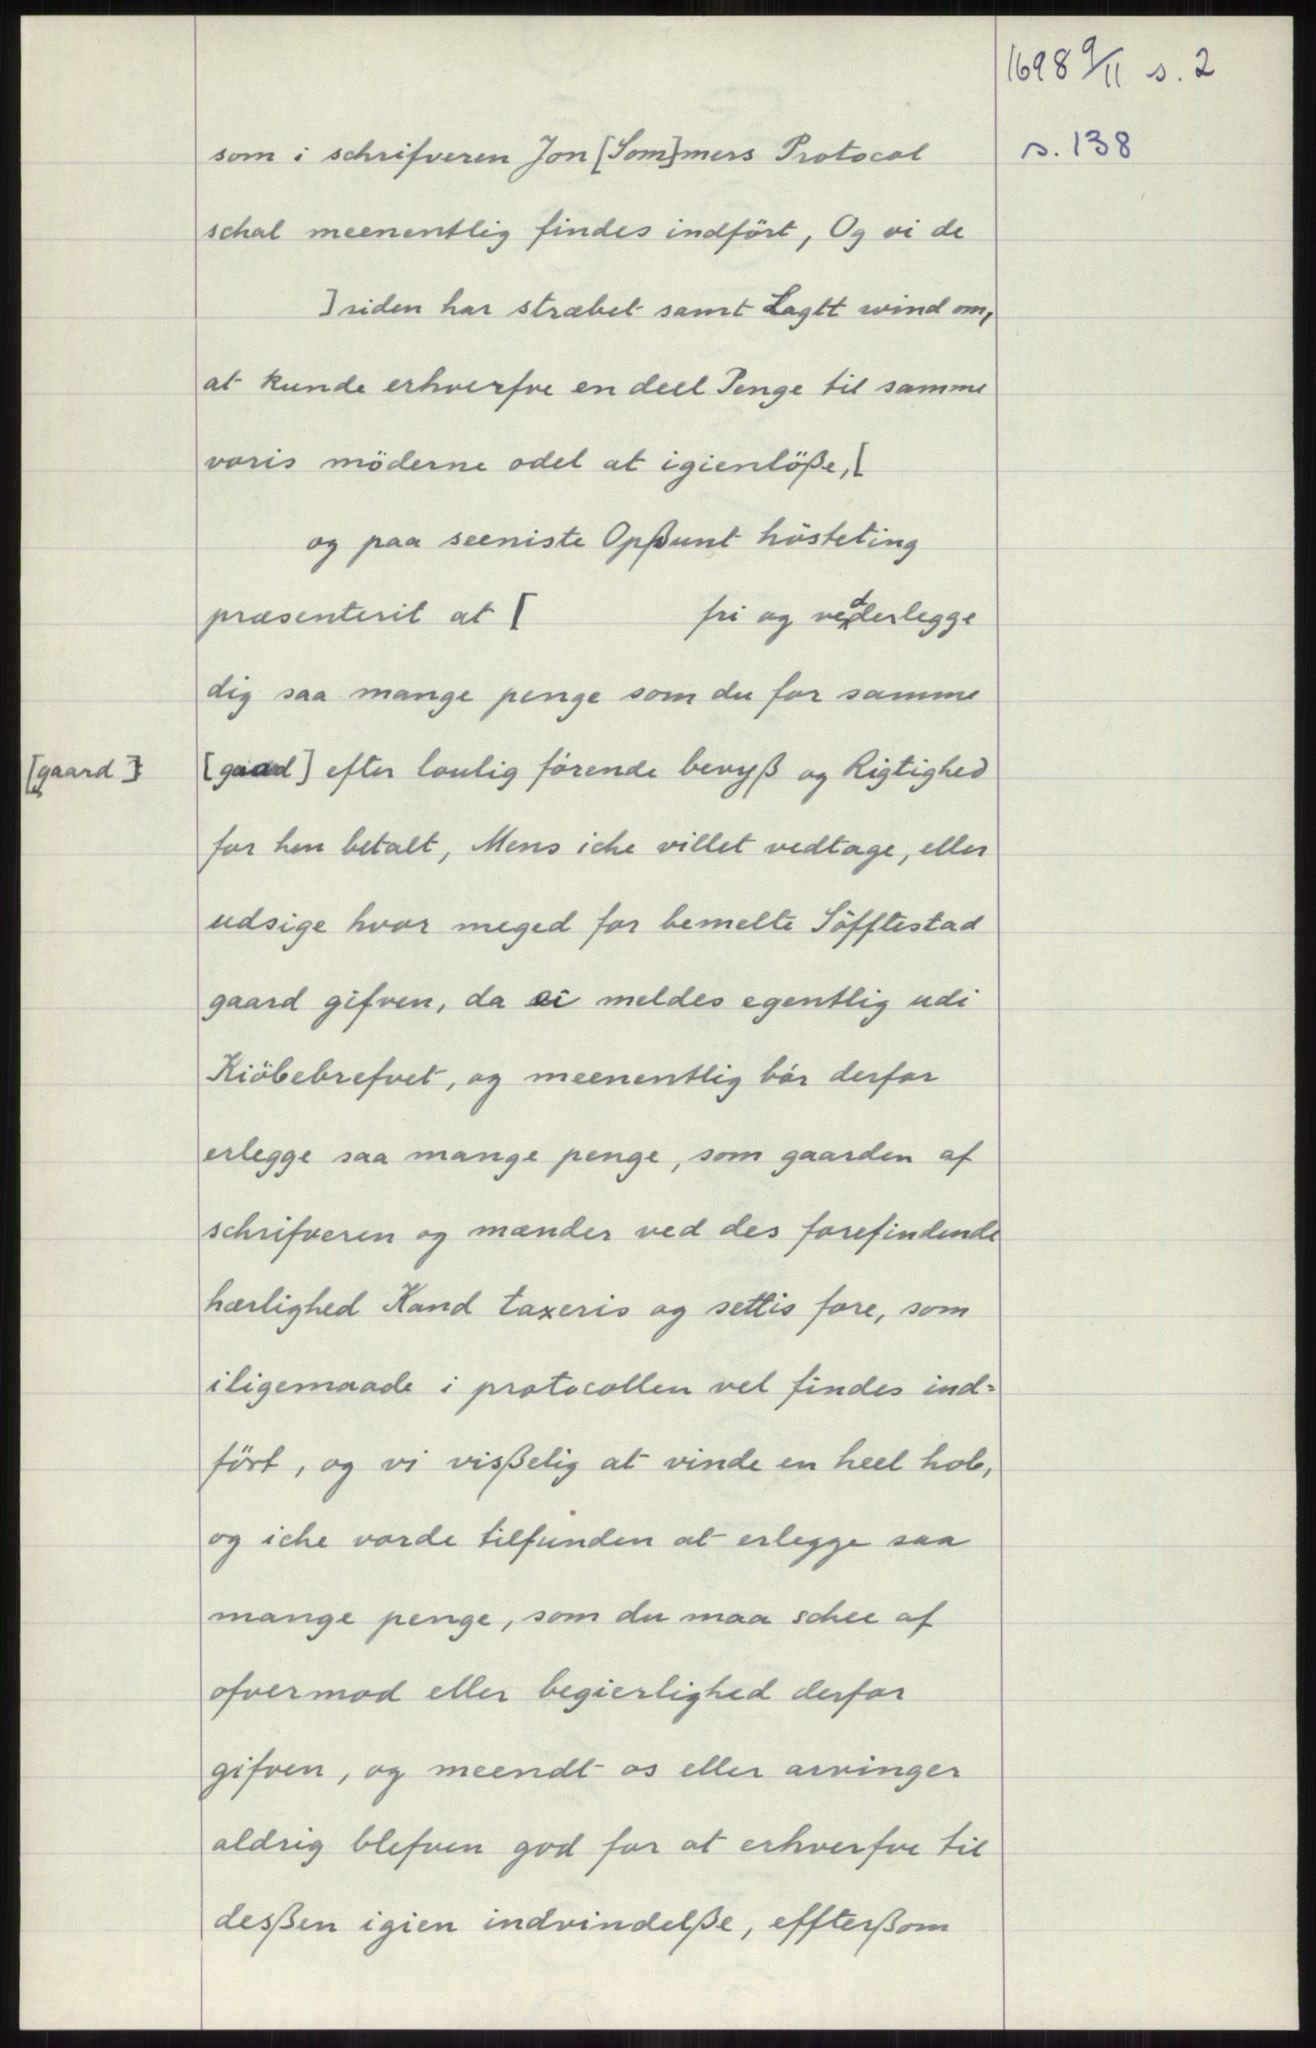 1698 9/11 s. 2
s. 138
som i schrifveren Jon [Som]mers Protocol
schal meenentlig findes indfört, Og vi de
] siden har stræbet samt Lagtt wind om,
at kunde erhverfve en deel Penge til samme
voris möderne odel at igienlöße, [
og paa seeniste Opßunt hösteting
præsenterit at [ fri og vedderlegge
dig saa mange penge som du for samme
[gaard]
[gaard] efter loulig förende bevyß og Rigtighed
for hen betalt, Mens iche villet vedtage, eller
udsige hvor meged for bemelte Söfftestad
gaard gifven, da ei meldes egentlig udi
Kiöbebrefvet, og meenentlig bör derfor
erlegge saa mange penge, som gaarden af
schrifveren og mænder ved des forefindende
hærlighed Kand taxeris og settis fore, som
iligemaade i protocollen vel findes ind=
fört, og vi visßelig at vinde en heel hob,
og iche vorde tilfunden at erlegge saa
mange penge, som du maa schee af
ofvermod eller begierlighed derfor
gifven, og meendt os eller arvinger
aldrig blefven god for at erhverfve til
desßen igien indvindelße, effterßom